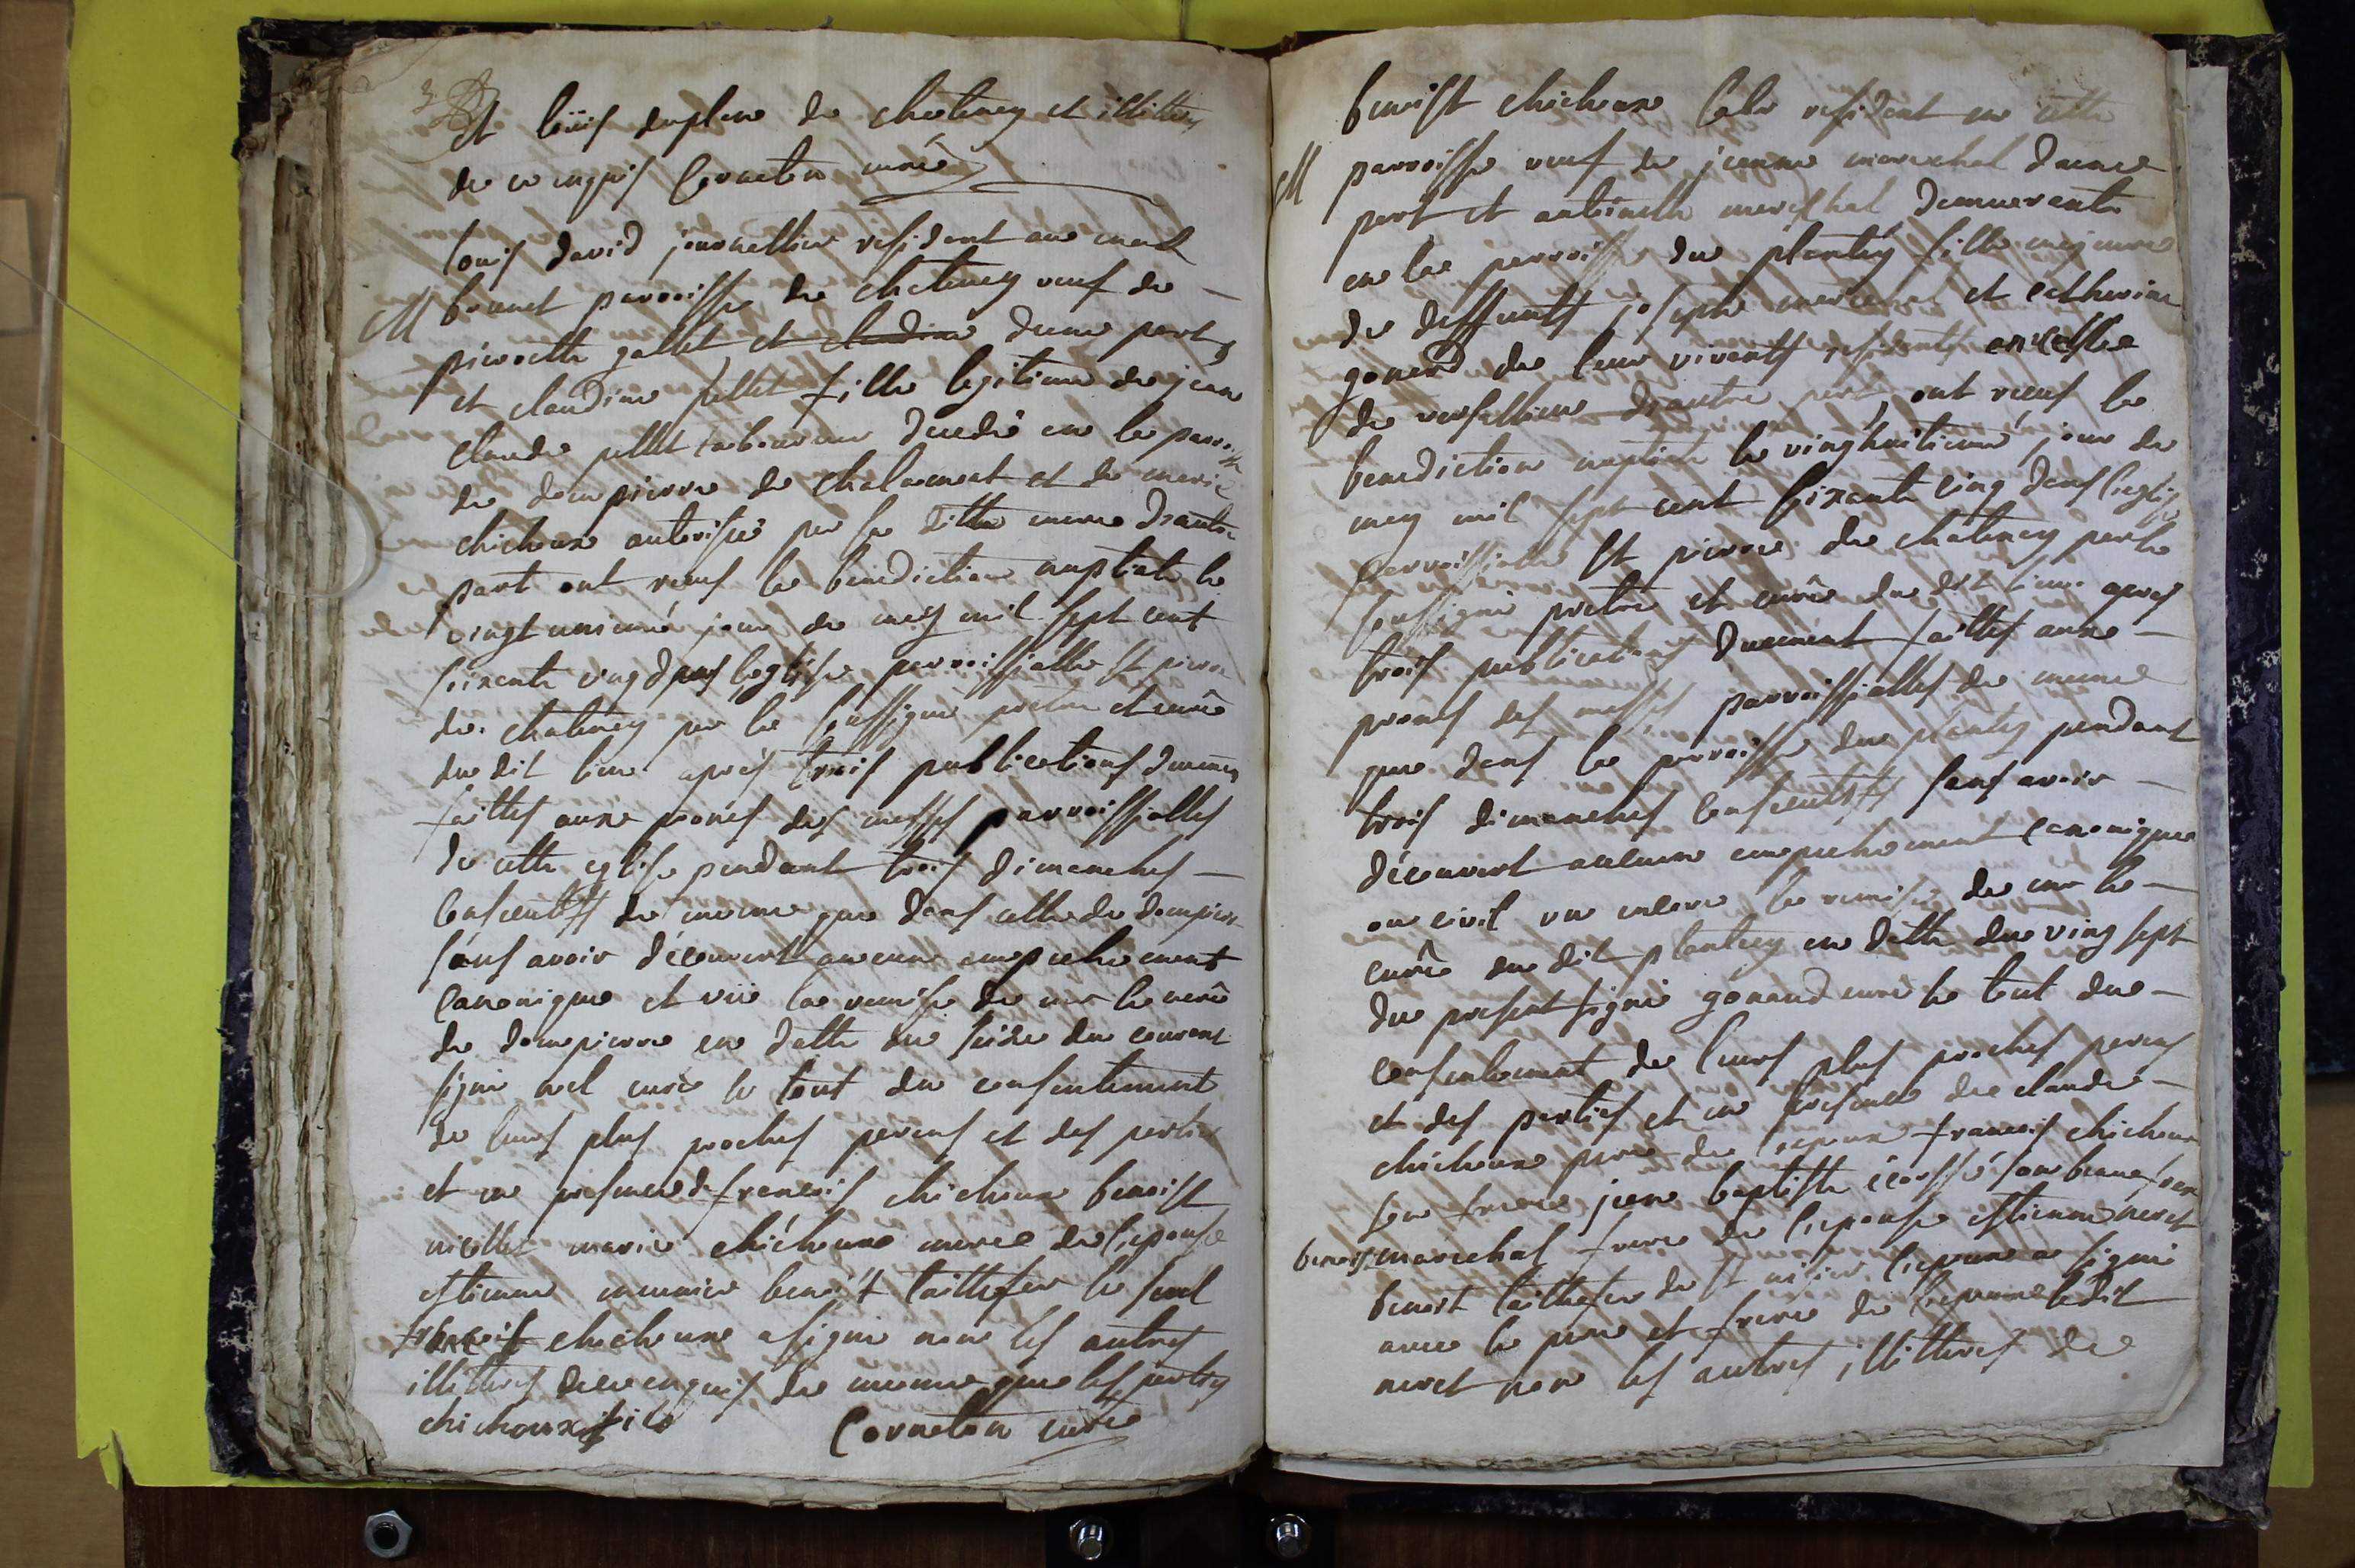 et loüis duplan de chatenay et illitterez
de ce enquis Corneton curé
louis david journallier resident au mas
M brunet parroisse de chatenay veuf de
pierrette gallet et claudine d'une part
et claudine pellet fille legitime de jean
claude pellet laboureur decedé en la parroisse
de dompierre de chalamont et de marie
chichoux autorisée par sa ditte mere d'autre
part ont reçus la benediction nuptiale le
vingt unieme jour de may mil sept cent
soixente cinq dans leglise parroissialle st pierre
de chatenay par le soussigné pretre et curé
du dit lieu après trois publications dument
faittes aux prones des messes parroissialles
de cette eglise pendant trois dimenches
consecutifs de meme que dans celle de dompierre
sans avoir découvert aucun empechement
canonique et vüe la remise de mr le curé
de dompierre en datte du seize du courent
signé curé le tout du consentement
de leurs plus proches parens et des parties
et en presence de françois chichoux benoist
nicollet marie chichoux mere de l'epouse
estienne meunier benoit taillefer le seul
françois chichoux a signé non les autres
illitterés de ce enquis de meme que les parties
chichoux fils Corneton curé
benoist chichoux resident en cette
M parroisse veuf de jeanne marechal d'une
part et antoinette mareschal demeurante
en la parroisse du plantay fille majeure
de deffunts joseph marechal et catherine
gonard de leur vivants residents en celle
de versallieux d'autre part, ont reçus la
benediction nuptiale le vinghuitieme jour de
may mil sept cent soixente cinq dans l'eglise
parroissialle st pierre de chatenay par le
soussigné pretre et curé du dit lieu après
trois publications dument faittes aux
prones des messes parroissialles de meme
que dans la parroisse du plantay pendant
trois dimanches consecutifs sans avoir
découvert aucun empechement canonique
ou civil vu encore la remise de mr le
curé du dit plantay en datte du ving sept
du present signé gonand curé le tout du
consentement de leurs plus proches parens
et des parties et en presence de claude
chichoux pere de l'epoux françois chichoux
son frere jean baptiste son beaufrere
benoist marechal frere de l'epouse estienne neret
benoit taillefer de st l'epoux a signé
avec le pere et frere de l'epoux ledit
neret non les autres illitterés de